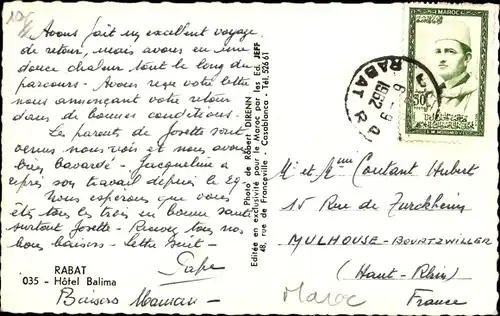 Avons fait un excellent voyage
de retour, mais avons eu une
douce chaleur tout le long du
parcours - Avons reçu votre lettre
nous annonçant votre retour
dans de bonnes conditions.
Les parents de Josette sont
venus nous voir et nous avons
bien bavardé - Jacqueline a
repris son travail depuis le
Nous espérons que vous
êtes tous les trois en bonne santé
surtout Josette - Recevez tous nos
bons baisers - Lettre suit -
Pape
RABAT
035 - Hôtel Balima
Baisers Maman -
Photo de Robert DIRENN
Editée en exclusivité pour le Maroc par les Ed. JEFF
48, rue de Franceville - Casablanca - Tél. 52661
MAROC
30
RABAT R.P
6-9
1962
Mr et Mme Coutant Hubert
15 Rue de Turckheim
MULHOUSE-BOURTZWILLER
(Haut-Rhin)
France
Maroc